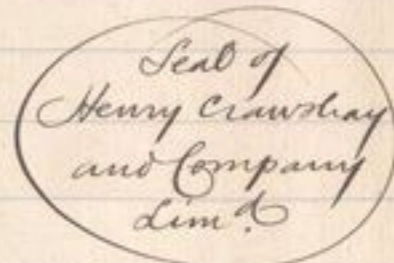 Seal of
Henry Crawshay
and Company
Lim.d